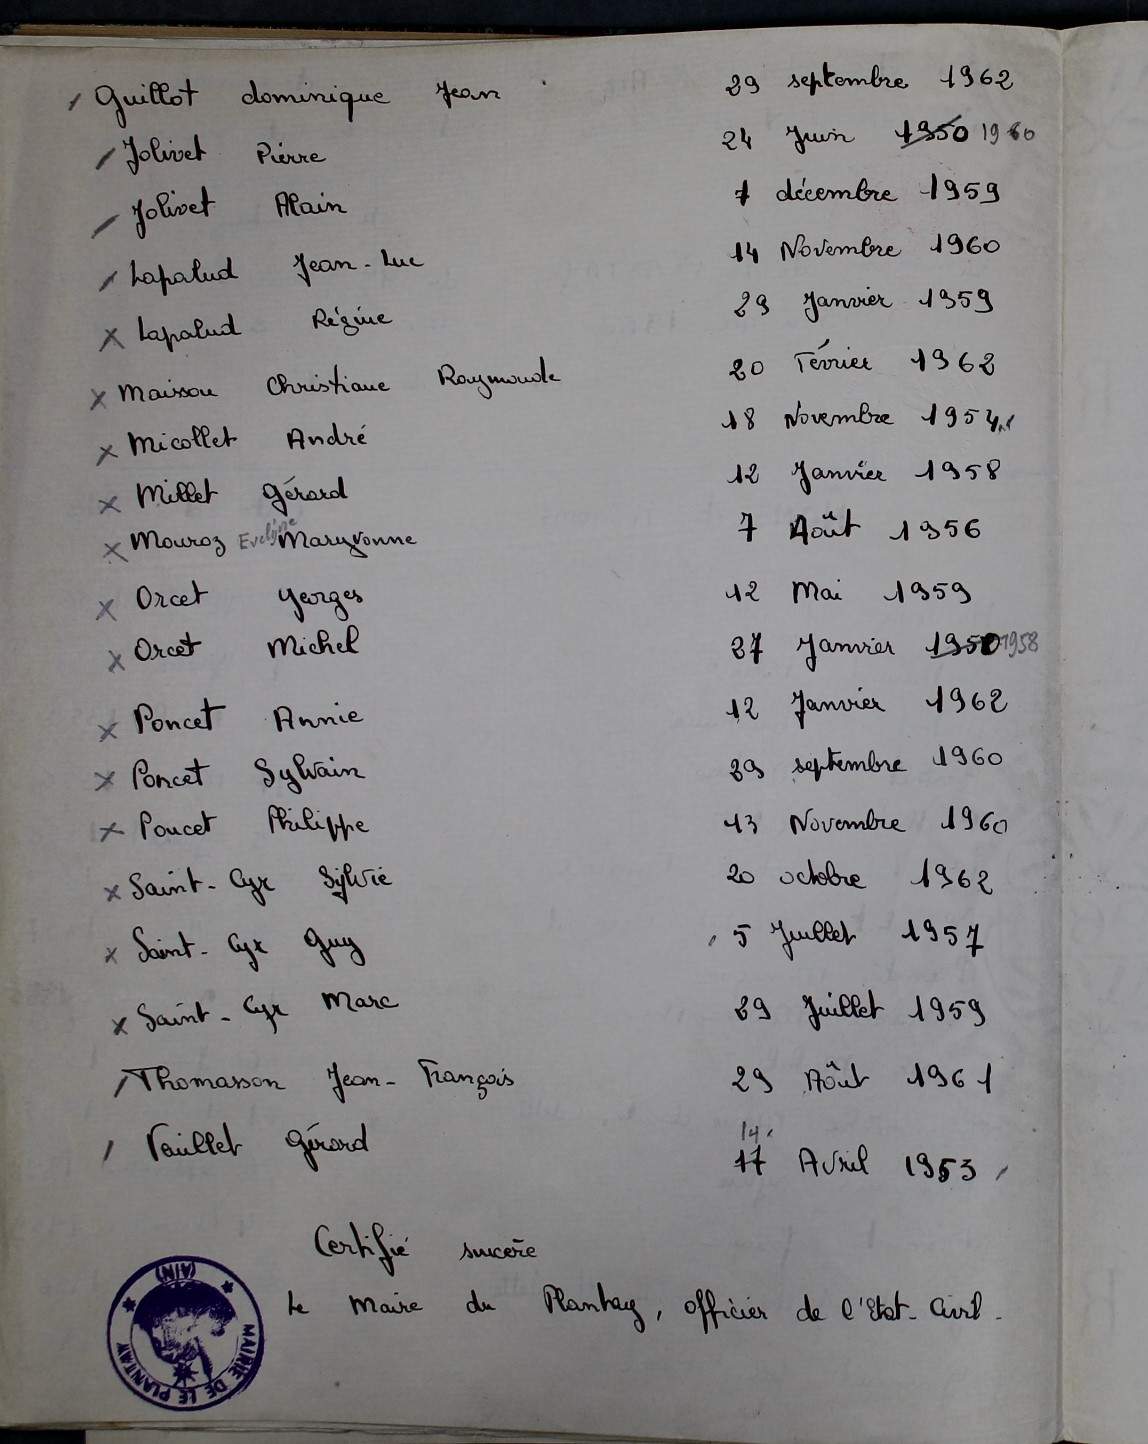 Guillot dominique Jean 29 septembre 1962
Jolivet Pierre 24 Juin 1950 1960
Jolivet Alain 7 décembre 1959
Lapalud Jean-Luc 14 Novembre 1960
Lapalud Régine 29 Janvier 1959
Maisson Christiane Raymonde 20 Février 1962
Micollet André 18 Novembre 1954
Millet Gérard 12 Janvier 1958
Mouroz Evelyne Maryvonne 7 Août 1956
Orcet Georges 12 Mai 1959
Orcet Michel 27 Janvier 1950 1958
Poncet Annie 12 Janvier 1962
Poncet Sylvain 29 septembre 1960
Poncet Philippe 13 Novembre 1960
Saint-Cyr Sylvie 20 octobre 1962
Saint-Cyr Guy 5 Juillet 1957
Saint-Cyr Marc 29 Juillet 1959
Thomasson Jean-François 29 Août 1961
14
Vaillet Gérard 17 Avril 1953
Certifié sincère
Le Maire du Plantay, officier de l'Etat-Civil.
MAIRIE DE LE PLANTAY
(AIN)